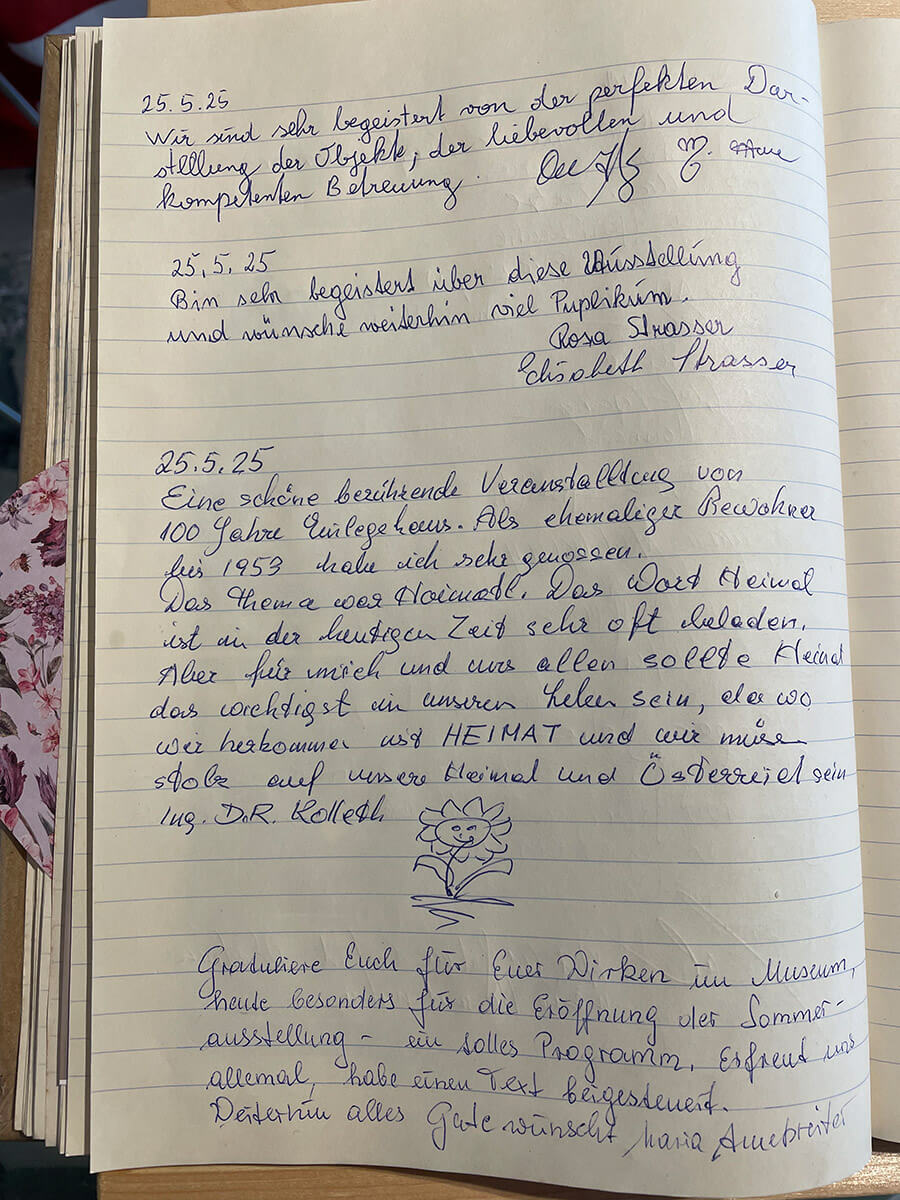 25.5.25
Wir sind sehr begeistert von der perfekten Dar-
stellung der Objekte, der liebevollen und
kompetenten Betreuung.
25.5.25
Bin sehr begeistert über diese Ausstellung
und wünsche weiterhin viel Puplikum.
Rosa Strasser
Elisabeth Strasser
25.5.25
Eine schöne berührende Veranstalltung von
100 Jahre Einlegehaus. Als ehemaliger Bewohner
bis 1953 habe ich sehr genossen.
Das Thema war Heimatl. Das Wort Heimat
ist in der heutigen Zeit sehr oft beladen.
Aber für mich und uns allen sollte Heimat
das wichtigst in unseren Leben sein, da wo
wir herkommen ist HEIMAT und wir müssen
stolz auf unsere Heimat und Österreich sein
Ing. D.R. Kolleth
Gratuliere Euch für Euer Wirken im Museum,
heute besonders für die Eröffnung der Sommer-
ausstellung - ein tolles Programm. Erfreut uns
allemal, habe einen Text beigesteuert.
Weiterhin alles Gute wünscht Maria